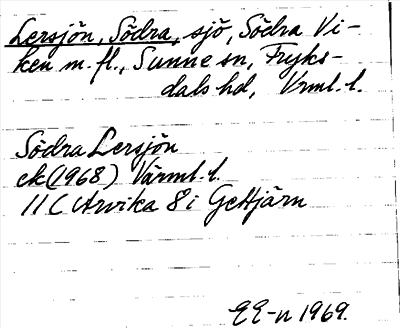 Lersjön, Södra, sjö, Södra Vi-
ken m. fl., Sunne sn, Fryks-
dals hd, Vrml. l.
Södra Lersjön
ek (1968) Värml. l.
11C Arvika 8 i Gettjärn
EE-n 1969.